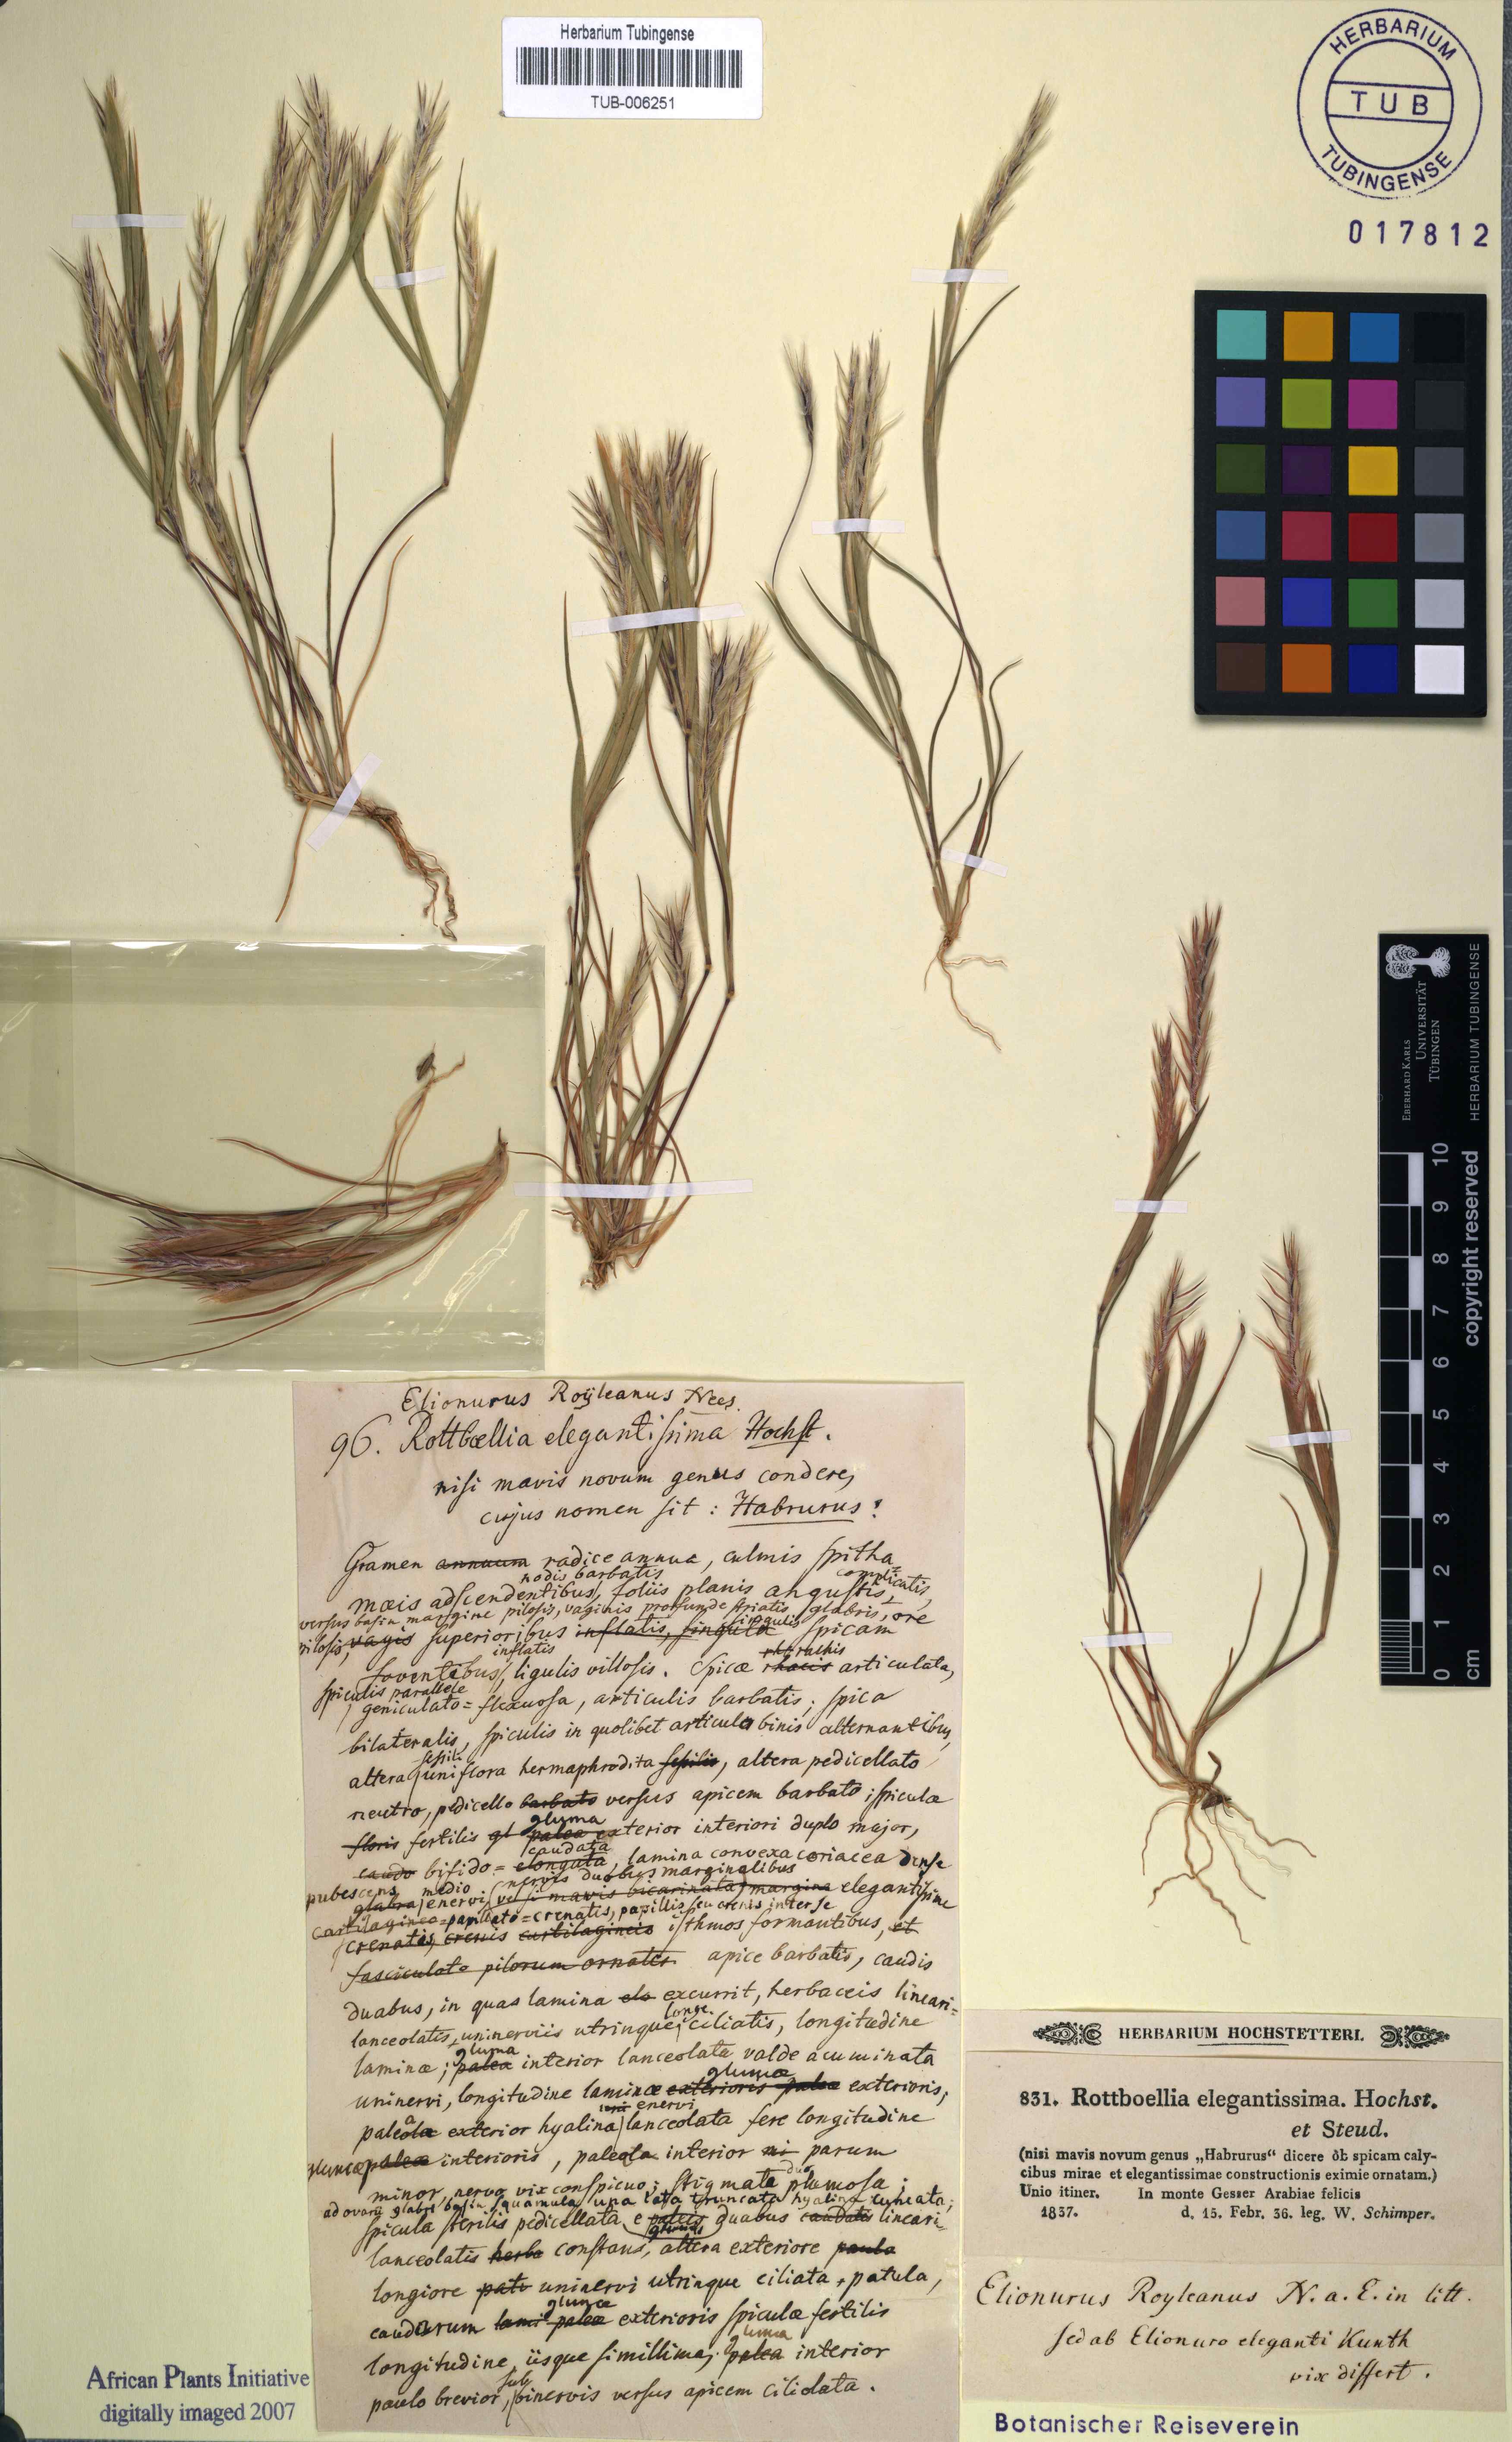 Herbarium Tubingense
TUB-006251
HERBARIUM
TUB
TUBINGENSE
017812
EBERHARD KARLS
UNIVERSITÄT
TÜBINGEN
HERBARIUM TUBINGENSE
copyright reserved
0 1 2 3 4 5 6 7 8 9 10
cm
Elionurus Royleanus Nees.
96. Rottboellia elegantissima Hochst.
nisi mavis novum genus condere,
cujus nomen sit : Habrurus!
Gramen annuum radice annua, culmis spitha=
nodis barbatis complicatis,
mæis adscendentibus, foliis planis angustis,
versus basin margine pilosis, vaginis profunde striatis glabris, ore
pilosis, vagis superioribus inflatis, singula singulis spicam
foventibus, inflatis ligulis villosis. Spicæ rhacis rhachis articulata,
spiculis parallele
geniculato=flexuosa, articulis barbatis; spica
bilateralis, spiculis in quolibet articulo binis alternantibus,
altera sessili uniflora hermaphrodita sessilis, altera pedicellato
neutro, pedicello barbato versus apicem barbato; spiculæ
floris fertilis gl palea gluma exterior interiori duplo major,
caudo bifido= elongata caudata, lamina convexa coriacea dense
pubescens medio nervis duobus marginalibus
glabra enervi (vel si mavis bicarinata) margine elegantissime
cartilagineo=papillato=crenatis, papillis seu crenis inter se
crenatis, crenis cartilagineis isthmos formantibus, et
fasciculato pilorum ornatis apice barbatis, caudis
duabus, in quas lamina elo excurrit, herbaceis lineari=
lanceolatis, uninerviis utrinque longe ciliatis, longitudine
laminæ; palea gluma interior lanceolata valde acuminata
uninervi, longitudine laminæ exterioris paleæ glumæ exterioris,
paleola exterior hyalina enervi lanceolata fere longitudine
glumæ paleæ interioris, paleola interior parum
minor, nervo vix conspicuo; stigmata duo plumosa;
ad ovarii glabri basin squamula una lata truncata hyalina cuneata;
spicula sterilis pedicellata e paleis glumis duabus caudatis lineari=
lanceolatis herba constans, altera exteriore paulo
longiore uninervi utrinque ciliata, patula,
caudarum paleæ glumæ exterioris spiculæ fertilis
longitudine, iisque simillima; palea gluma interior
paulo brevior, sub binervis versus apicem ciliolata.
HERBARIUM HOCHSTETTERI.
831. Rottboellia elegantissima. Hochst.
et Steud.
(nisi mavis novum genus „Habrurus“ dicere ob spicam caly-
cibus mirae et elegantissimae constructionis eximie ornatam.)
Unio itiner. In monte Gesser Arabiae felicis
1837. d. 15. Febr. 36. leg. W. Schimper.
Elionurus Royleanus N. a. E. in litt.
sed ab Elionuro eleganti Kunth
vix differt.
African Plants Initiative
digitally imaged 2007
Botanischer Reiseverein